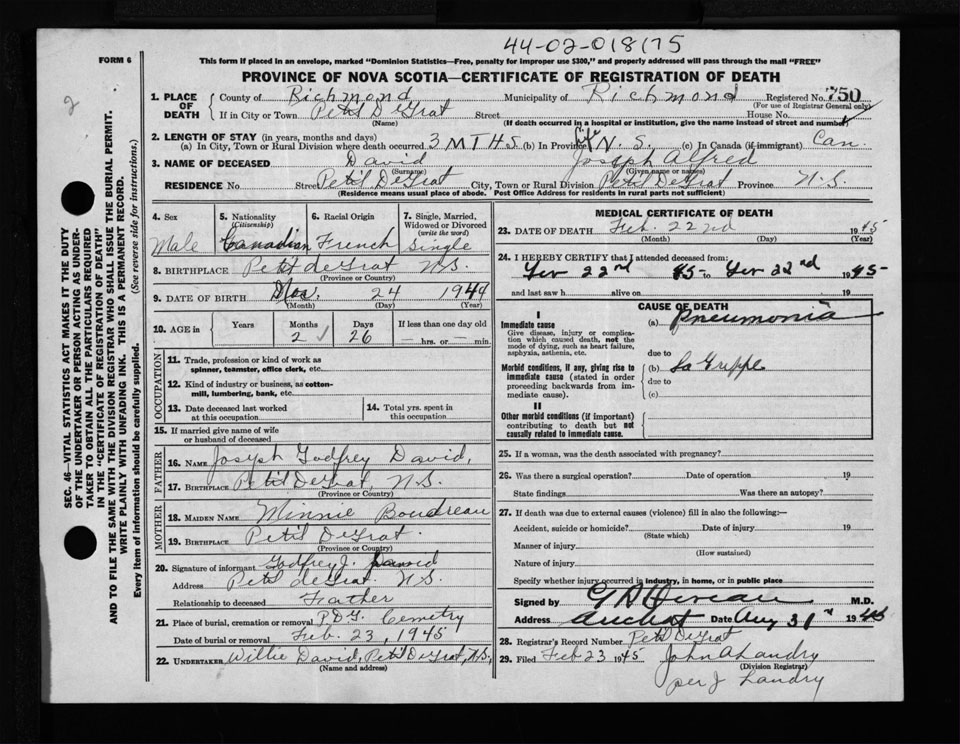 44-02-018175
FORM 6
This form if placed in an envelope, marked "Dominion Statistics—Free, penalty for improper use $300," and properly addressed will pass through the mail "FREE"
PROVINCE OF NOVA SCOTIA—CERTIFICATE OF REGISTRATION OF DEATH
2
SEC. 46—VITAL STATISTICS ACT MAKES IT THE DUTY
OF THE UNDERTAKER OR PERSON ACTING AS UNDER-
TAKER TO OBTAIN ALL THE PARTICULARS REQUIRED
IN THE "CERTIFICATE OF REGISTRATION OF DEATH"
AND TO FILE THE SAME WITH THE DIVISION REGISTRAR WHO SHALL ISSUE THE BURIAL PERMIT.
WRITE PLAINLY WITH UNFADING INK. THIS IS A PERMANENT RECORD.
Every item of information should be carefully supplied. (See reverse side for instructions.)
1. PLACE OF DEATH County of Richmond Municipality of Richmond Registered No. 750
(For use of Registrar General only)
If in City or Town Petit DeGrat Street House No.
(Name) (If death occurred in a hospital or institution, give the name instead of street and number)
2. LENGTH OF STAY (in years, months and days)
(a) In City, Town or Rural Division where death occurred 3 MTHS. (b) In Province life N.S. (c) In Canada (if immigrant) Can.
3. NAME OF DECEASED David Joseph Alfred
(Surname) (Given name or names)
RESIDENCE No. Street Petit DeGrat City, Town or Rural Division Petit DeGrat Province N.S.
(Residence means usual place of abode. Post Office Address for residents in rural parts not sufficient)
4. Sex 5. Nationality (Citizenship) 6. Racial Origin 7. Single, Married, Widowed or Divorced (write the word)
Male Canadian French Single
8. BIRTHPLACE Petit de Grat N.S.
(Province or Country)
9. DATE OF BIRTH Nov. 24 1944
(Month) (Day) (Year)
10. AGE in Years Months Days If less than one day old
2 26 — hrs. or — min.
OCCUPATION
11. Trade, profession or kind of work as
spinner, teamster, office clerk, etc.
12. Kind of industry or business, as cotton-
mill, lumbering, bank, etc.
13. Date deceased last worked
at this occupation
14. Total yrs. spent in
this occupation
15. If married give name of wife
or husband of deceased
FATHER
16. NAME Joseph Godfrey David,
17. BIRTHPLACE Petit DeGrat, N.S.
(Province or Country)
MOTHER
18. MAIDEN NAME Minnie Boudreau
19. BIRTHPLACE Petit DeGrat.
(Province or Country)
20. Signature of informant Godfrey J. David
Address Petit deGrat. N.S.
Relationship to deceased Father
21. Place of burial, cremation or removal P.D.G. Cemetry
Date of burial or removal Feb. 23, 1945
22. UNDERTAKER Willie David, Petit DeGrat, N.S.
(Name and address)
MEDICAL CERTIFICATE OF DEATH
23. DATE OF DEATH Feb. 22nd 1945
(Month) (Day) (Year)
24. I HEREBY CERTIFY that I attended deceased from:
22nd 45 to 22nd 1945
and last saw h alive on 19
CAUSE OF DEATH
I
Immediate cause
Give disease, injury or complica-
tion which caused death, not the
mode of dying, such as heart failure,
asphyxia, asthenia, etc.
(a) Pneumonia
due to
Morbid conditions, if any, giving rise to
immediate cause (stated in order
proceeding backwards from im-
mediate cause)
(b) La Grippe
due to
(c)
II
Other morbid conditions (if important)
contributing to death but not
causally related to immediate cause.
25. If a woman, was the death associated with pregnancy?
26. Was there a surgical operation? Date of operation 19
State findings Was there an autopsy?
27. If death was due to external causes (violence) fill in also the following:—
Accident, suicide or homicide? Date of injury 19
(State which)
Manner of injury
(How sustained)
Nature of injury
Specify whether injury occurred in industry, in home, or in public place
Signed by M.D.
Address Date Aug 31 1945
28. Registrar's Record Number Petit DeGrat
29. Filed Feb 23 1945 John A Landry
(Division Registrar)
per J Landry